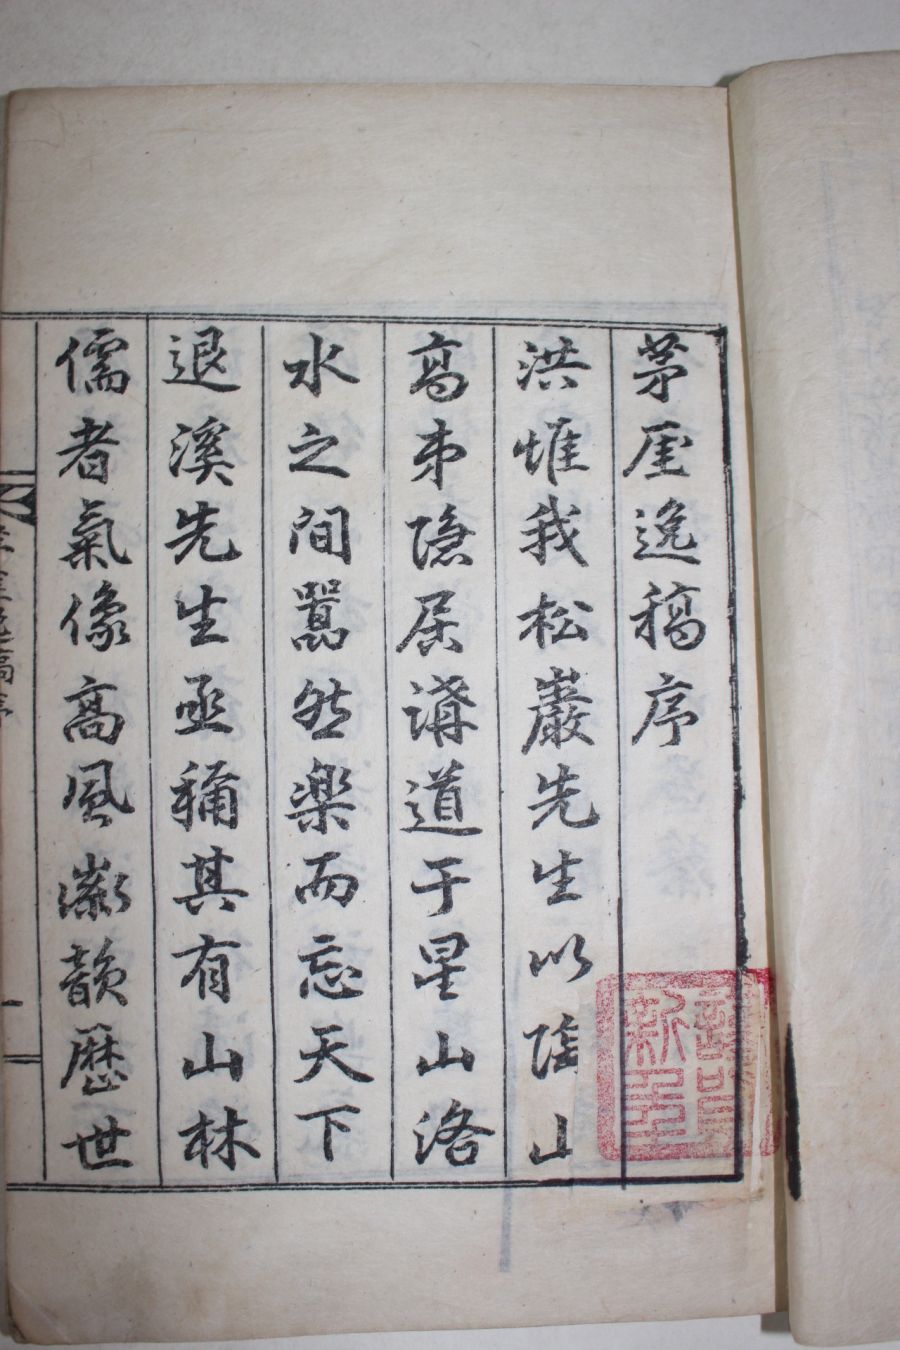 茅屋逸稿序
洪惟我松巖先生以陶山
高弟隱居講道于星山洛
水之間囂然樂而忘天下
退溪先生亟稱其有山林
儒者氣像高風潄韻歷世
茅屋逸稿序